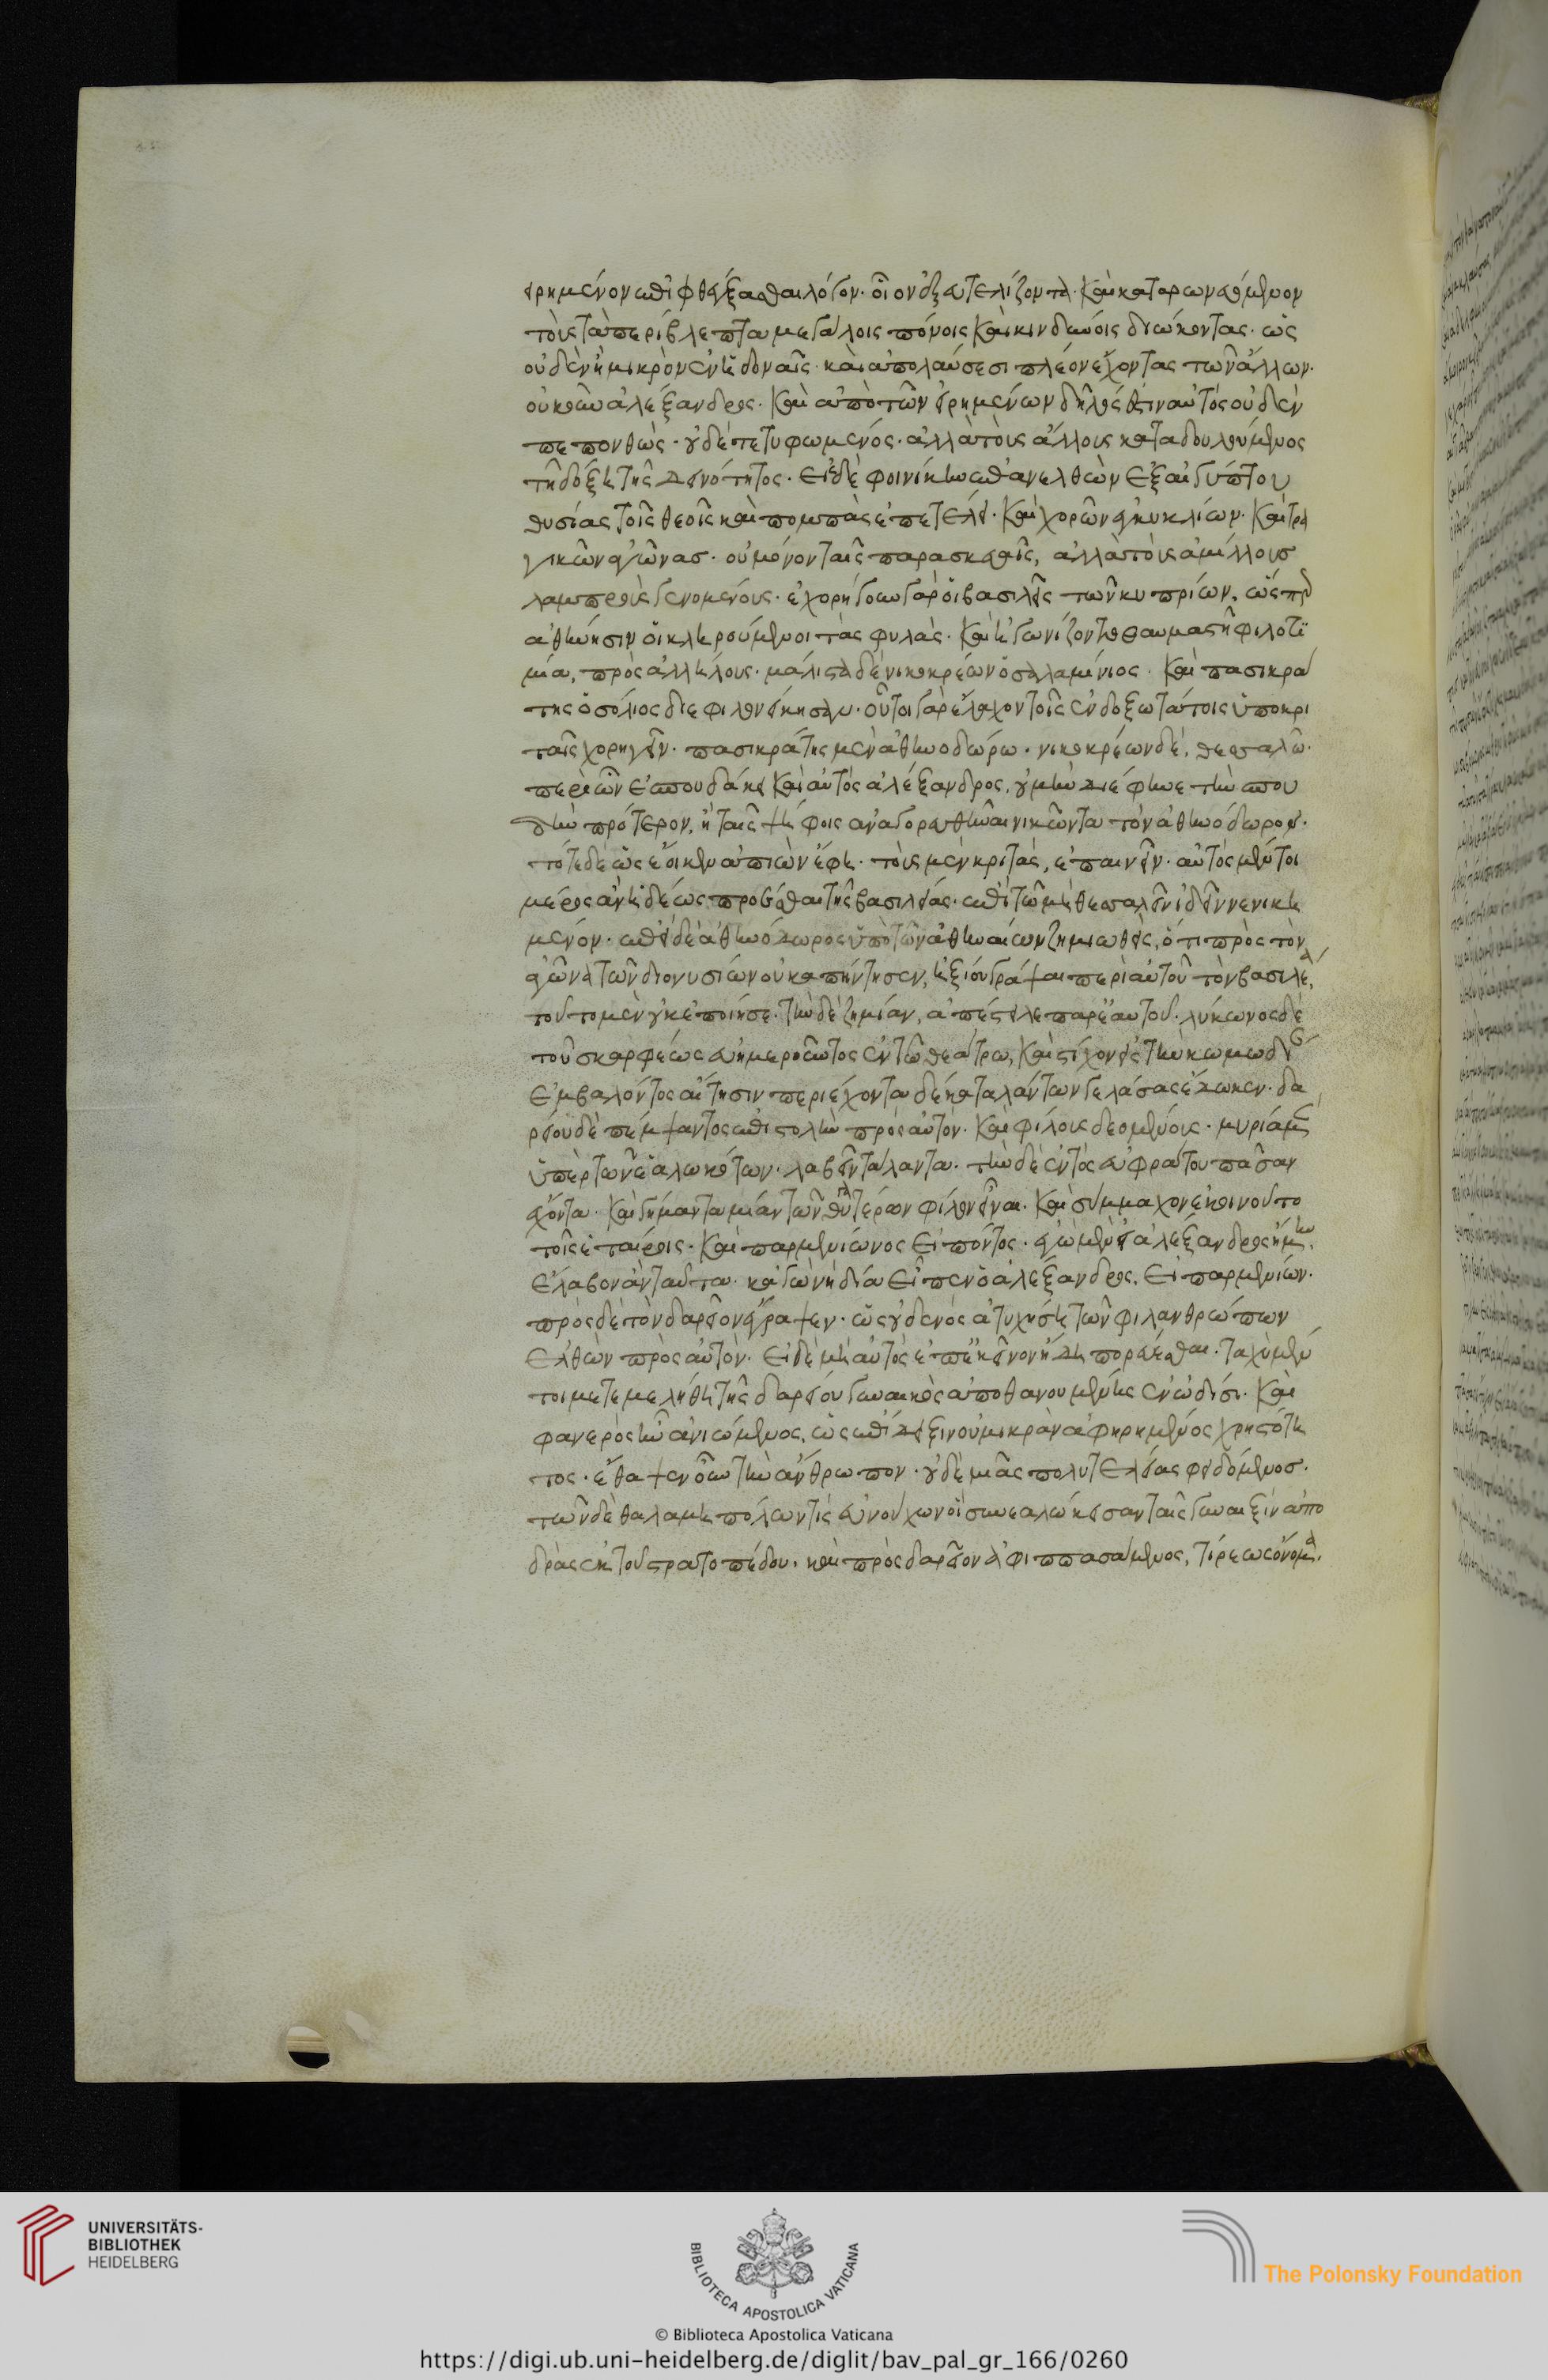 εἰρημένον ἐπιφθέγξασθαι λόγον· οἷον ἐξευτελίζοντα· καὶ κατειρωνευόμενον
τοὺς τὰ περίβλεπτα μεγάλοις πόνοις καὶ κινδύνοις διώκοντας· ὡς
οὐδὲν ἢ μικρὸν ἐν ἡδοναῖς· καὶ ἀπολαύσεσι πλέον ἔχοντας τῶν ἄλλων·
οὐκοῦν ἀλέξανδρος· καὶ ἀπὸ τῶν εἰρημένων δῆλός ἐστιν αὐτὸς οὐδὲν
πεπονθὼς· οὐδὲ τετυφωμένος· ἀλλὰ τοὺς ἄλλους καταδουλούμενος
τῆ δόξη τῆς δεινότητος· Εἰς δὲ φοινίκην ἐπανελθὼν ἐξ αἰγύπτου
θυσίας τοῖς θεοῖς καὶ πομπὰς ἐπετέλει· καὶ χορῶν ἐγκυκλίων· καὶ τρα
γικῶν ἀγῶνας· οὐ μόνον ταῖς παρασκευαῖς, ἀλλὰ τοῖς ἁμίλλους
λαμπροὺς γενομένους· ἐχορήγουν γὰρ οἱ βασιλεῖς τῶν κυπρίων, ὥσπερ
ἀθήνησιν οἱ κληρούμενοι τὰς φυλὰς· καὶ ἠγωνίζοντο θαυμαστῆ φιλοτι
μία, πρὸς ἀλλήλους· μάλιστα δὲ νικοκρέων ὁ σαλαμίνιος· καὶ πασικρά
της ὁ σόλιος διεφιλονείκησαν· οὗτοι γὰρ ἔλαχον τοῖς ἐνδοξωτάτοις ὑποκρι
ταῖς χορηγεῖν· πασικράτης μὲν ἀθηνοδώρω· νικοκρέων δὲ, θεσσαλῶ·
περὶ ὧν ἐσπουδάκει καὶ αὐτὸς ἀλέξανδρος, οὐ μὴν διέφηνε τὴν σπου
δὴν πρότερον, ἢ ταῖς ψήφοις ἀναγορευθῆναι νικῶντα τὸν ἀθηνόδωρον·
τότε δὲ ὡς ἔοικεν ἀπιὼν ἔφη· τοὺς μὲν κριτάς, ἐπαινεῖν· αὐτὸς μέντοι
μέρος ἂν ἡδέως προέσθαι τῆς βασιλείας· ἐπὶ τῶ μὴ θεσσαλὸν ἰδεῖν νενικη
μένον· ἐπεὶ δὲ ἀθηνόδωρος ὑπὸ τῶν ἀθηναίων ζημιωθεὶς, ὅτι πρὸς τὸν
ἀγῶνα τῶν διονυσίων οὐκ ἀπήντησεν, ἠξίου γράψαι περὶ αὐτοῦ τὸν βασιλέα,
τοῦτο μὲν οὐκ ἐποίησε· τὴν δὲ ζημίαν, ἀπέστειλε παρ' ἑαυτοῦ· λύκωνος δὲ
τοῦ σκαρφέως εὐημεροῦντος ἐν τῶ θεάτρω, καὶ στίχον εἰς τὴν κωμωδίαν
ἐμβαλόντος αἴτησιν περιέχοντα δέκα ταλάντων γελάσας ἔδωκεν· δα
ρείου δὲ πέμψαντος ἐπιστολὴν πρὸς αὐτὸν· καὶ φίλους δεομένους· μύρια μὲν
ὑπὲρ τῶν ἑαλωκότων· λαβεῖν τάλαντα· τὴν δὲ ἐντὸς εὐφράτου πᾶσαν
ἔχοντα· καὶ γήμαντα μίαν τῶν θυγατέρων φίλον εἶναι· καὶ σύμμαχον ἐκοινοῦτο
τοῖς ἑταίροις· καὶ παρμενίωνος εἰπόντος· ἐγὼ μὲν εἰ ἀλέξανδρος ἤμην,
ἔλαβον ἂν ταῦτα· κἀγὼ νὴ δία εἶπεν ὁ ἀλέξανδρος, εἰ παρμενίων·
πρὸς δὲ τὸν δαρεῖον ἔγραψεν· ὡς οὐδενὸς ἀτυχήσει τῶν φιλανθρώπων
ἐλθὼν πρὸς αὐτὸν· εἰ δὲ μὴ αὐτὸς ἐπ' ἐκεῖνον ἤδη πορεύεσθαι· ταχὺ μέν
τοι μετεμελήθη τῆς δαρείου γυναικὸς ἀποθανουμένης ἐν ὠδῖσι· καὶ
φανερὸς ἦν ἀνιώμενος, ὡς ἐπίδειξιν οὐ μικρὰν ἀφηρημένος χρηστότη
τος· ἔθαψεν οὖν τὴν ἄνθρωπον· οὐδεμιᾶς πολυτελείας φειδόμενος·
τῶν δὲ θαλαμηπόλων τίς εὐνούχων οἳ συνεαλώκεσαν ταῖς γυναιξὶν ἀπο
δρὰς ἐκ τοῦ στρατοπέδου· καὶ πρὸς δαρεῖον ἀφιππασάμενος, τίρεως ὄνομα,
UNIVERSITÄTS-
BIBLIOTHEK
HEIDELBERG
BIBLIOTECA APOSTOLICA VATICANA
The Polonsky Foundation
© Biblioteca Apostolica Vaticana
https://digi.ub.uni-heidelberg.de/diglit/bav_pal_gr_166/0260